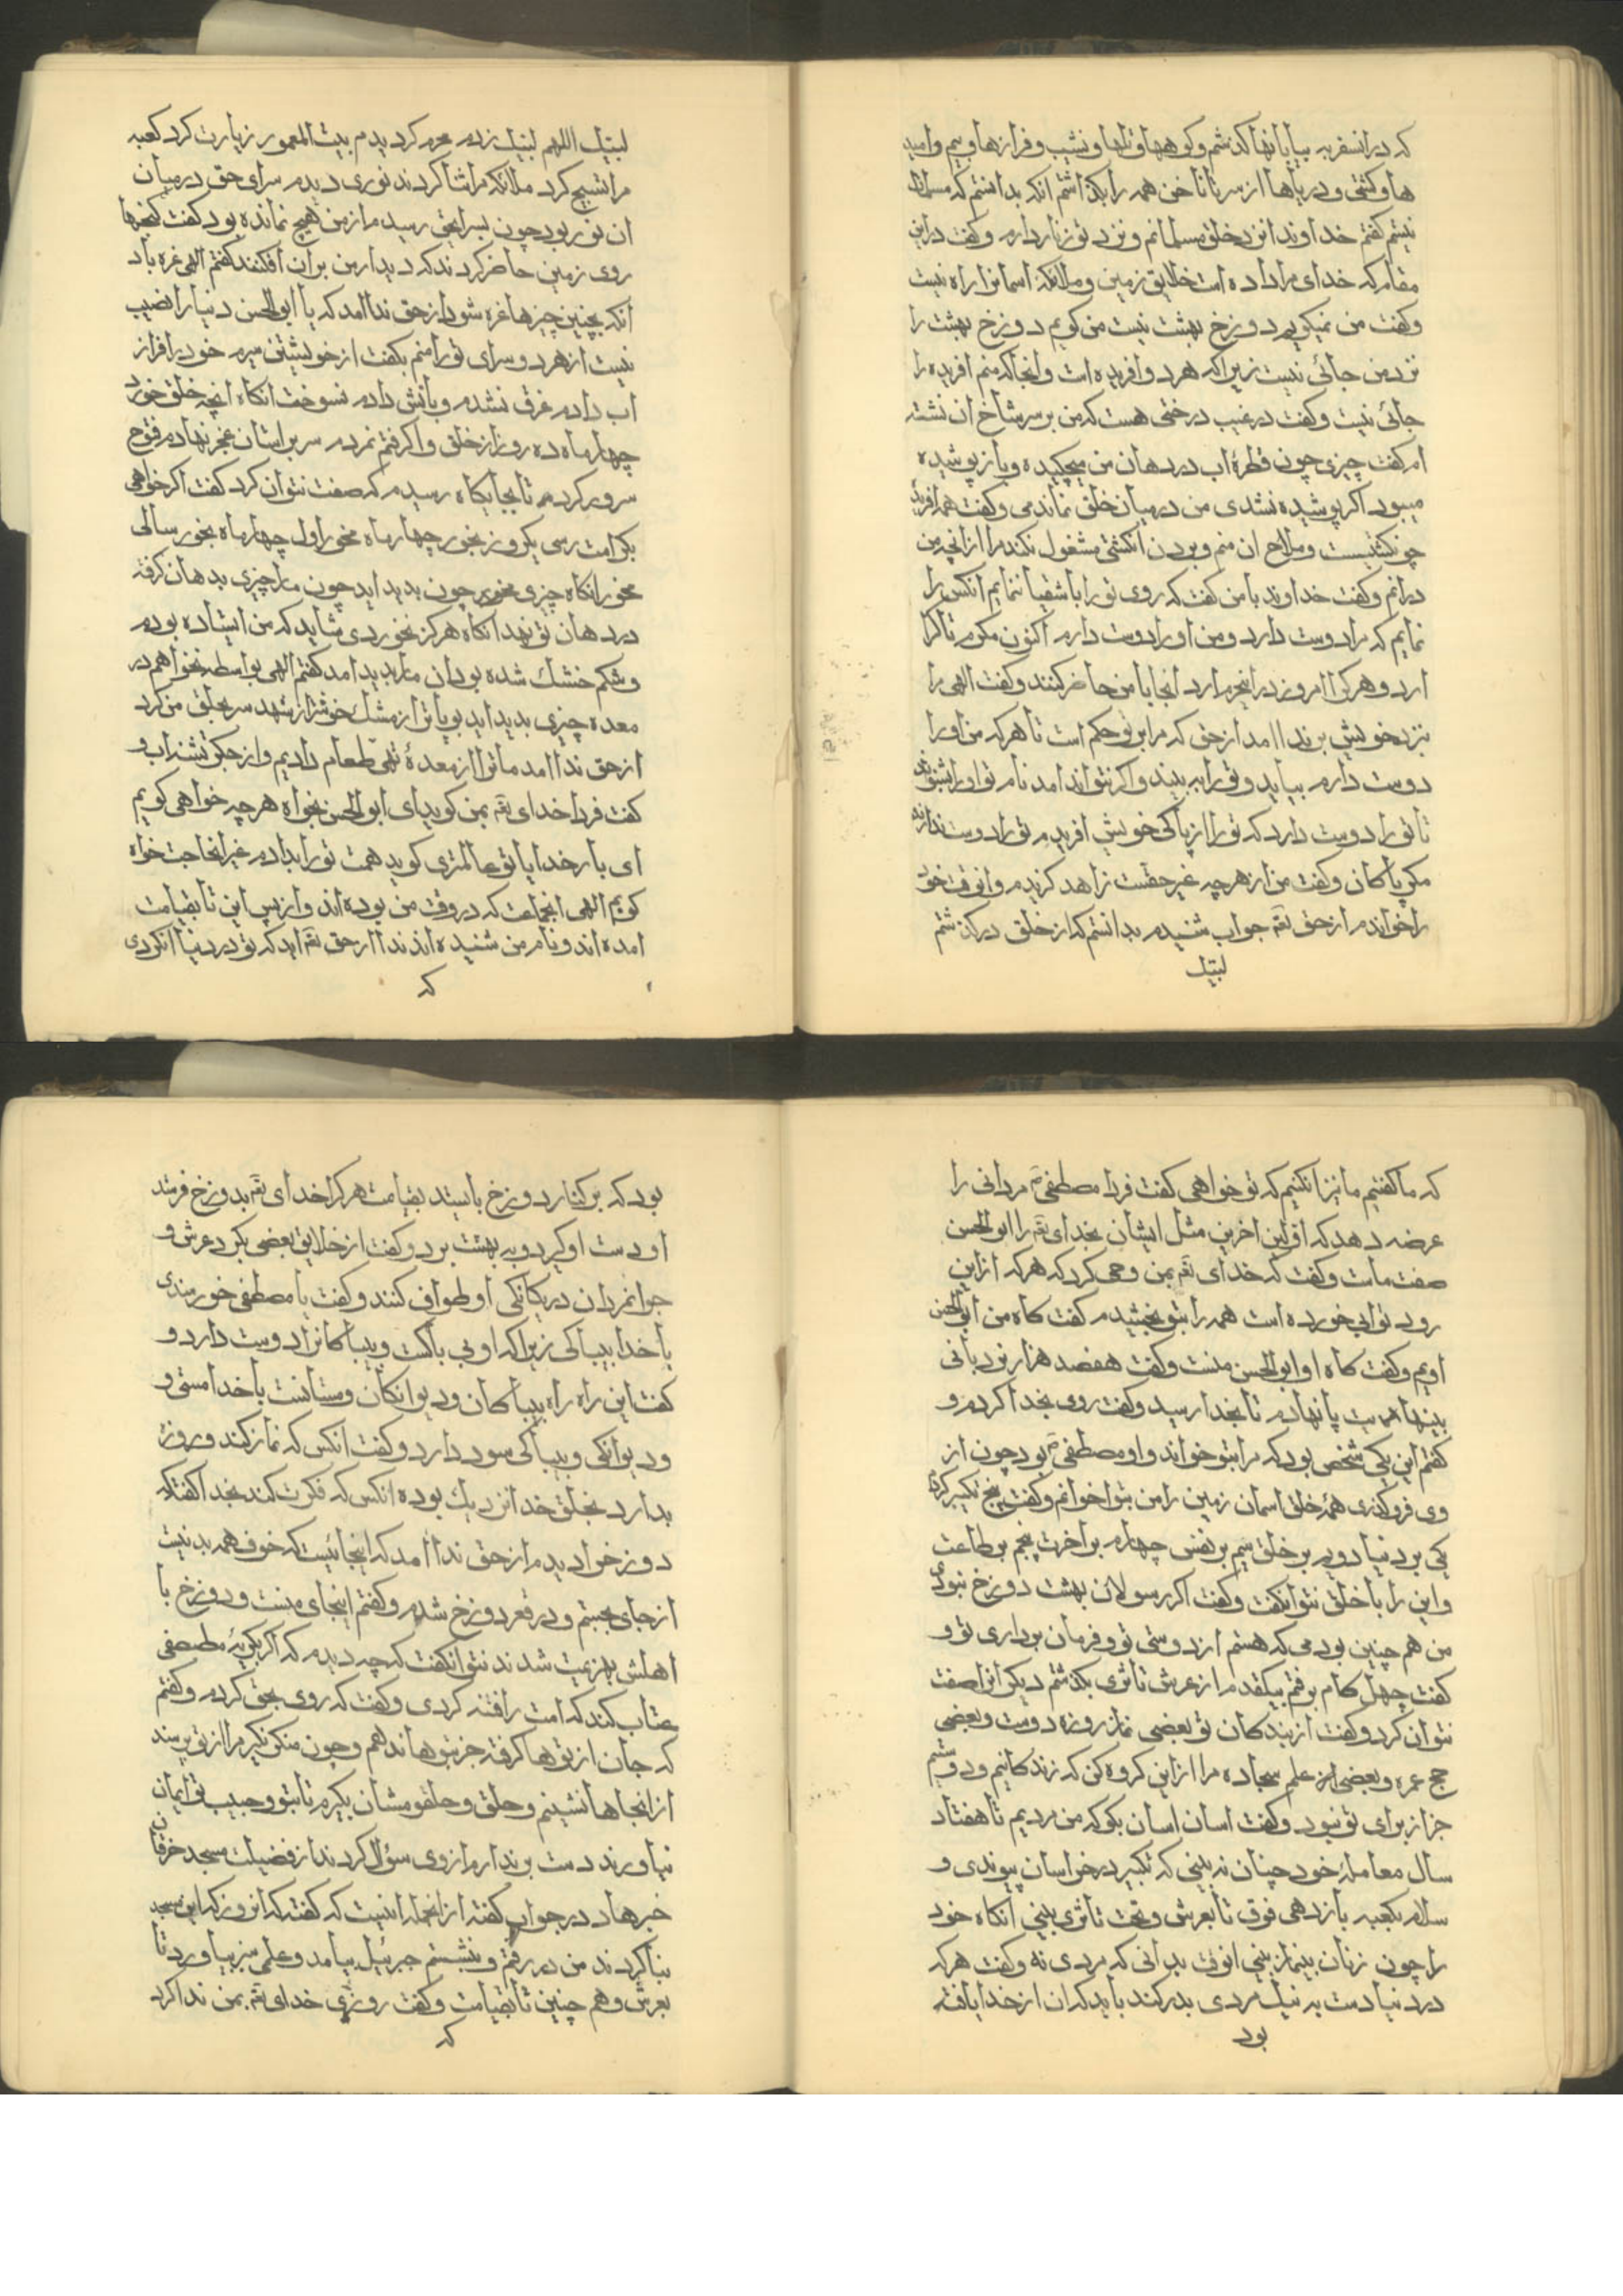 که در انسفر به بیابانها کذشتم و کوهها و تلها و نشیب و فرازها و بیم و امید
ها و کشتی و دریاها از سر تا ناخن همه را بکذاشتم انکه بدانستم که مسلمان
نیستم کفتم خداوندا نزد خلق مسلمانم و نزد تو زنار دارم و کفت در این
مقام که خدای مرا داده است خلایق زمین و ملائکه اسمانرا راه نیست
و کفت من نمیکویم دوزخ بهشت نیست من کویم دوزخ بهشت را
نزد من جائی نیست زیرا که هر دو افریده است و انجا که منم افریده را
جائی نیست و کفت در غیب درختی هست که من بر سر شاخ ان نشته
ام کفت چیزی چون قطرهٔ اب در دهان من میچکیده و باز پوشیده
میبود اکر پوشیده نشدی من در میان خلق نماندمی و کفت همه افریده
چو نکشتیست و ملاح ان منم و بردن انکشتی مشغول نکند مرا از انچه من
درانم و کفت خداوند با من کفت که روی تو را با شقیا ننمایم انکس را
نمایم که مرا دوست دارد و من او را دوست دارم اکنون مکرم تا کرا
ارد و هر کرا امروز در اینحرم ارد انجا با من حاضر کنند و کفت الهی مرا
بنزد خویش بر ندا امد از حق که مرا بر تو حکم است تا هر که من او را
دوست دارم بیاید و تو را به بیند و اکر نتواند امد نام تو او را بشنوانند
تا تو را دوست دارد که تو را از پاکی خویش افریدم تو را دوست ندارند
مکر پاکان و کفت من از هرچه غیر حقست زاهد کردیدم و انوقت خود
را خواندم از حق تقه جواب شنیدم بدانستم که از خلق در کذشتم
لبیک
لبیک اللهم لبیک زدم محرم کردیدم بیت المعمور زیارت کرد کعبه
مرا تسبیح کرد ملائکه مرا ثنا کردند نوری دیدم سرای حق در میان
ان نور بود چون بسرای حق رسیدم از من هیچ نمانده بود کفت کنجها
روی زمین حاضر کردند که دیدار من بران افکنند کفتم الهی غره باد
انکه بچنین چیزها غره شود از حق ندا امد که یا ابو الحسن دنیا را نصیب
نیست از هر دو سرای تو را منم بکفت از خویشتن سیرم خود را فراز
اب دادم غرق نشدم و باتش دادم نسوخت انکاه انچه خلق خورد
چهار ماه ده روز از خلق وا کرفتم نمردم سر بر استان عجز نهادم فتوح
سرور کردم تا بجایکاه رسیدم که صفت نتوان کرد کفت اکر خواهی
بکرامت رسی یکروز بخور چهار ماه مخور اول چهار ماه بخور سالی
مخور انکاه چیزی مخور چون بدید اید چون مار چیزی بدهان کرفته
در دهان تو نهد انکاه هرکز نخوردی شاید که من ایستاده بودم
و شکم خشک شده بود ان مار بدید امد کفتم الهی بواسطه نخواهم در
معده چیزی بدید اید بویاتر از مشک خوشتر از شهد سر بحلق من کرد
از حق ندا امد ما تو را از معدهٔ تهی طعام دادیم و از جکر تشنه اب و
کفت فردا خدای تقه بمن کوید ای ابو الحسن بخواه هرچه خواهی کویم
ای بار خدایا تو عالمتری کوید همت تو را بدادم غیر انحاجت خواه
کویم الهی انجماعت که در وقت من بوده اند و از پس این تا بقیامت
امده اند و نام من شنیده اند ندا از حق تقه اید که تو در دنیا ان کردی
که
که ما کفتیم ما نیز ان کنیم که تو خواهی کفت فردا مصطفی مردانی را
عرضه دهد که اولین اخرین مثل ایشان بخدای تقه را ابو الحسن
صفت مات و کفت که خدای تقه بمن وحی کرد که هر که از این
رود تو ابی خورده است همه را بتو بخشیدم کفت کاه من ابو الحسن
اویم و کفت کاه او ابو الحسن منست و کفت هفصد هزار نردبانی
بینهاییت پا نهادم تا بخدا رسید و کفت روی بخدا کردم و
کفتم این یکی شخص بود که مرا بتو خواند و او مصطفی بود چون از
وی فرو کذری همهٔ خلق اسمان زمین را من بتو خوانم و کفت پنج تکبیر کردم
یکی بر دنیا دویم بر خلق سیم بر نفس چهارم بر اخرت پنجم بر طاعت
و این را با خلق نتوانکفت و کفت اکر رسولان بهشت دوزخ نبودی
من هم چنین بودمی که هستم از دوستی تو و فرمان برداری تو و
کفت چهل کام برفتم بیکقدم از عرش تا ثری بکذشتم دیکر انرا صفت
نتوان کرد و کفت از بندکان تو بعضی نماز روزه دوست و بعضی
حج عمره و بعضی از علم سجاده مرا از این کروه کن که زندکانیم و دوستیم
جز از برای تو نبود و کفت اسان اسان بکو که من مردیم تا هفتاد
سال معاملهٔ خود چنان نه بینی که تکبیر در خراسان پیوندی و
سلام بکعبه باز دهی فوق تا بعرش و تحت تا ثری بینی انکاه خود
را چون زنان بینماز بینی انوقت بدانی که مردی نه و کفت هر که
در دنیا دست به نیک مردی بدر کند باید که ان از خدا یافته
بود
بود که بر کنار دوزخ بایستد بقیامت هر کرا خدای تقه بدوزخ فرستد
او دست او کیرد و به بهشت برد و کفت از خلایق بعضی بکرد عرش و
جوانمردان در یکانکی او طواف کنند و کفت با مصطفی خورمندی
با خدا بیباکی زیرا که او بی باکست و بیباکانرا دوست دارد و
کفت این راه راه بیباکان و دیوانکان و مستانست با خدا مستی و
و دیوانکی و بیباکی سود دارد و کفت انکس که نماز کند و روزه
بدارد بخلق خدا نزدیک بوده انکس که فکرت کند بخدا کفتا که
دوزخ را دیدم از حق ندا امد که اینجائیست که خوف همه بدنیت
از جای بجستم و در قعر دوزخ شدم و کفتم اینجای منست و دوزخ با
اهلش بهزیمت شدند نتوانکفت که چه دیدم که اکر بکویم مصطفی
عتاب کند که امت را فتنه کردی و کفت که روی بحق کردم و کفتم
که جان از توها کرفته جز بتو هاندهم و چون منکر نکیر مرا از تو پرسند
از انجاها نشینم و حلق و حلقومشان بکیرم تا بتو و حبیب تو ایمان
نیاورند دست برندارم از وی سؤال کردند از فضیلت مسجد خرقان
خبرها در جواب کفته از انجمله اینست که کفته که انروز که این مسجد
بنا کردند من در رفتم و بنشستم جبرئیل بیامد و علمی سبز بیاورد تا
بعرش و هم چنین تا بقیامت و کفت روزی خدای تقه بمن ندا کرد
که